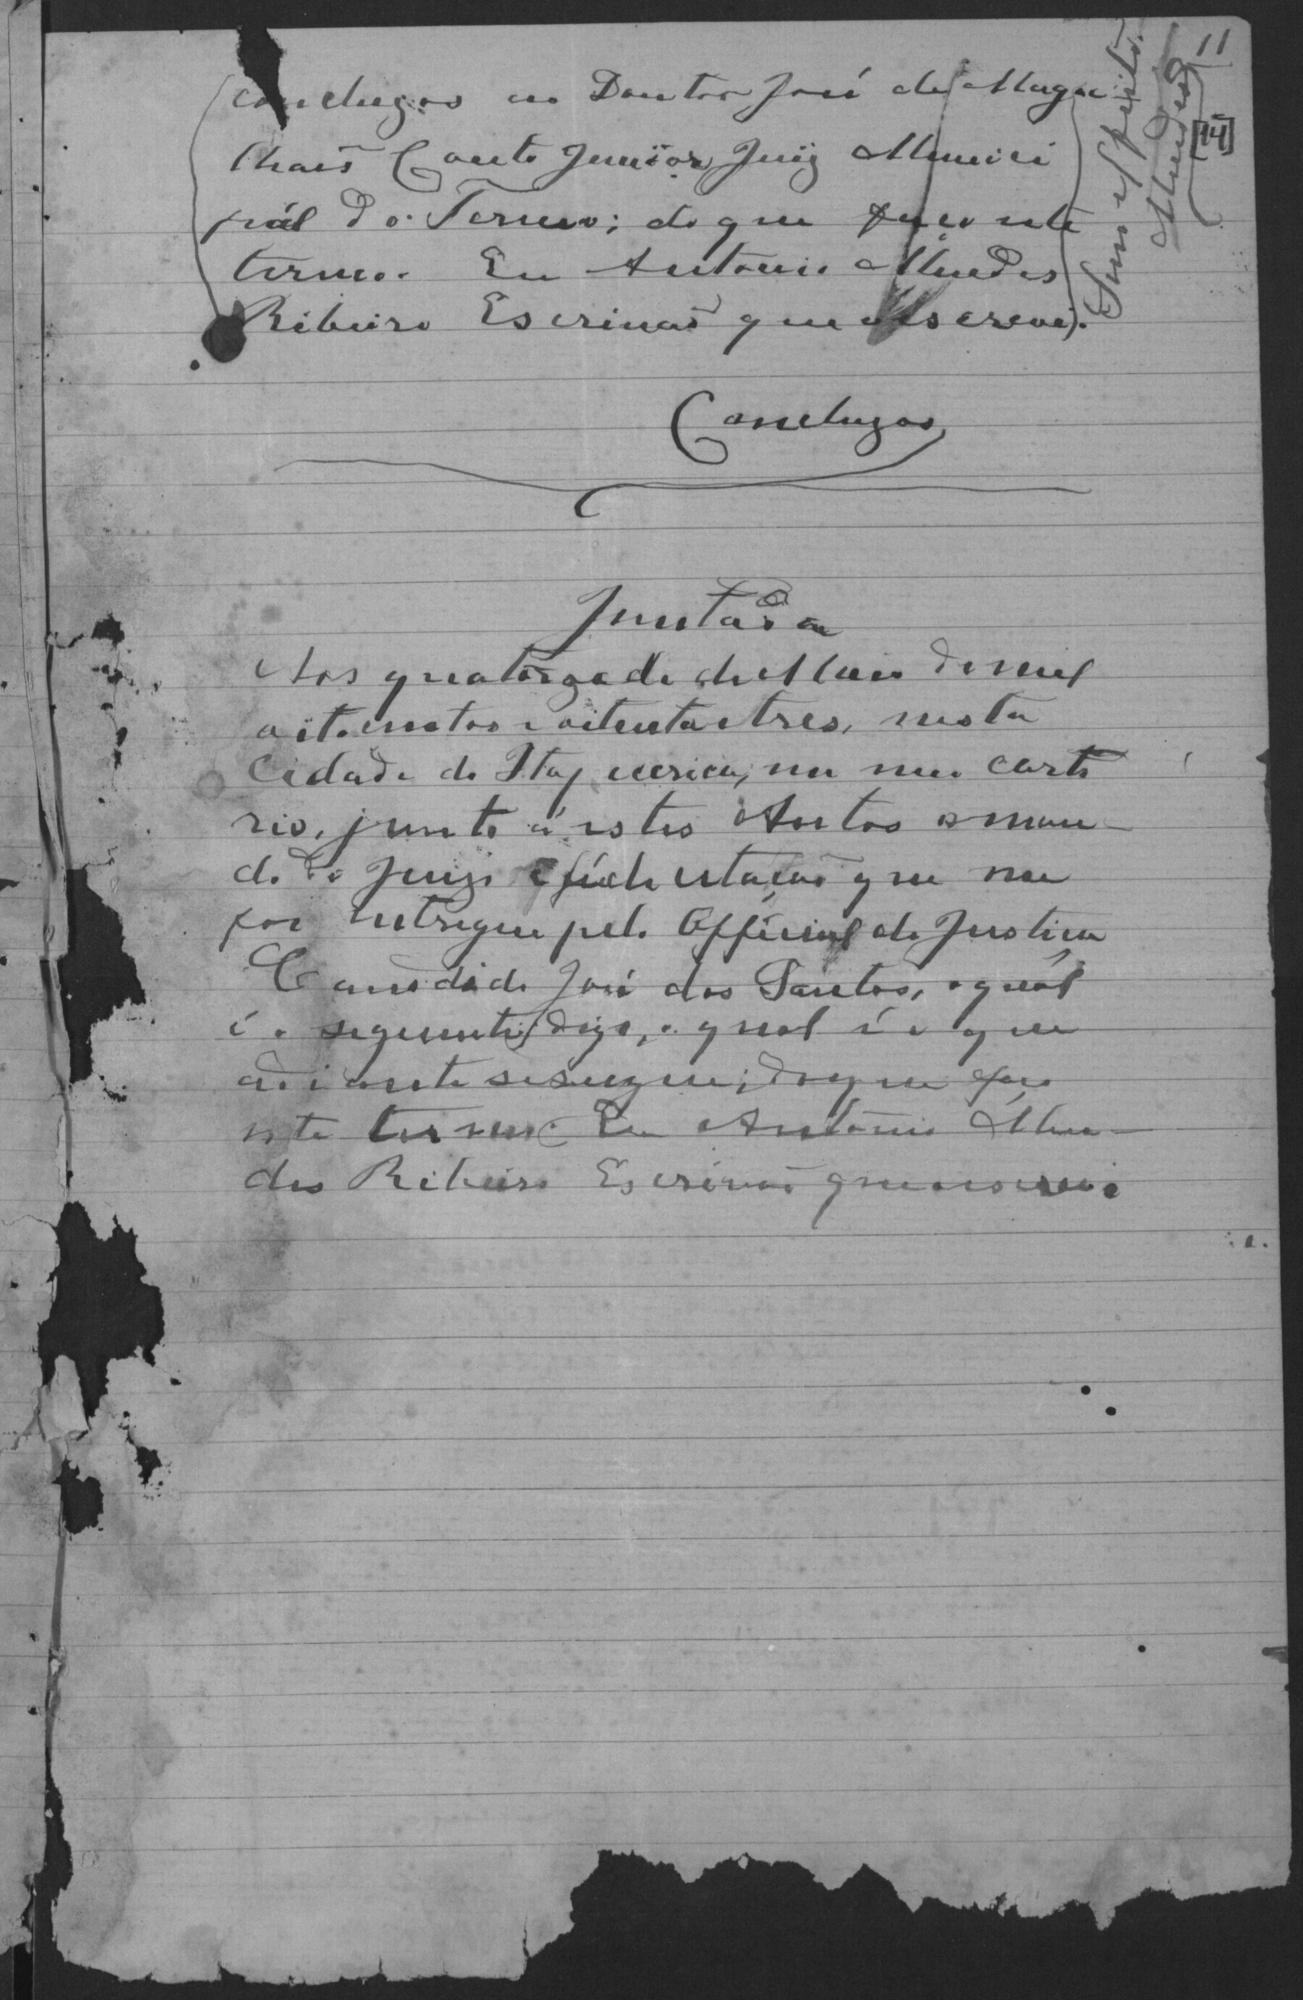 11
[14]
Sem effeito.
Mendes
concluzos ao Doutor José de Maga-
lhaẽs Couto Junior, Juiz Munici
pál do Termo; do que faço este
termo. Eu Antonio Mendes
Ribeiro Escrivaõ que o escrevi).
Concluzos
Juntada
Aos quatorze de de Maio de mil
oitocentos e oitenta e tres, nesta
Cidade de Itapecerica, em meu carto
rio, junto á estes Autos o man-
do do Juizo e fé de citaçaõ que me
foi entregue pelo Official de Justiça
Candido José dos Santos, o quál
é o seguinte, digo, o qual é o que
adiante se segue; do que faço
este termo. Eu Antonio Men-
des Ribeiro Escrivaõ que o escrevi